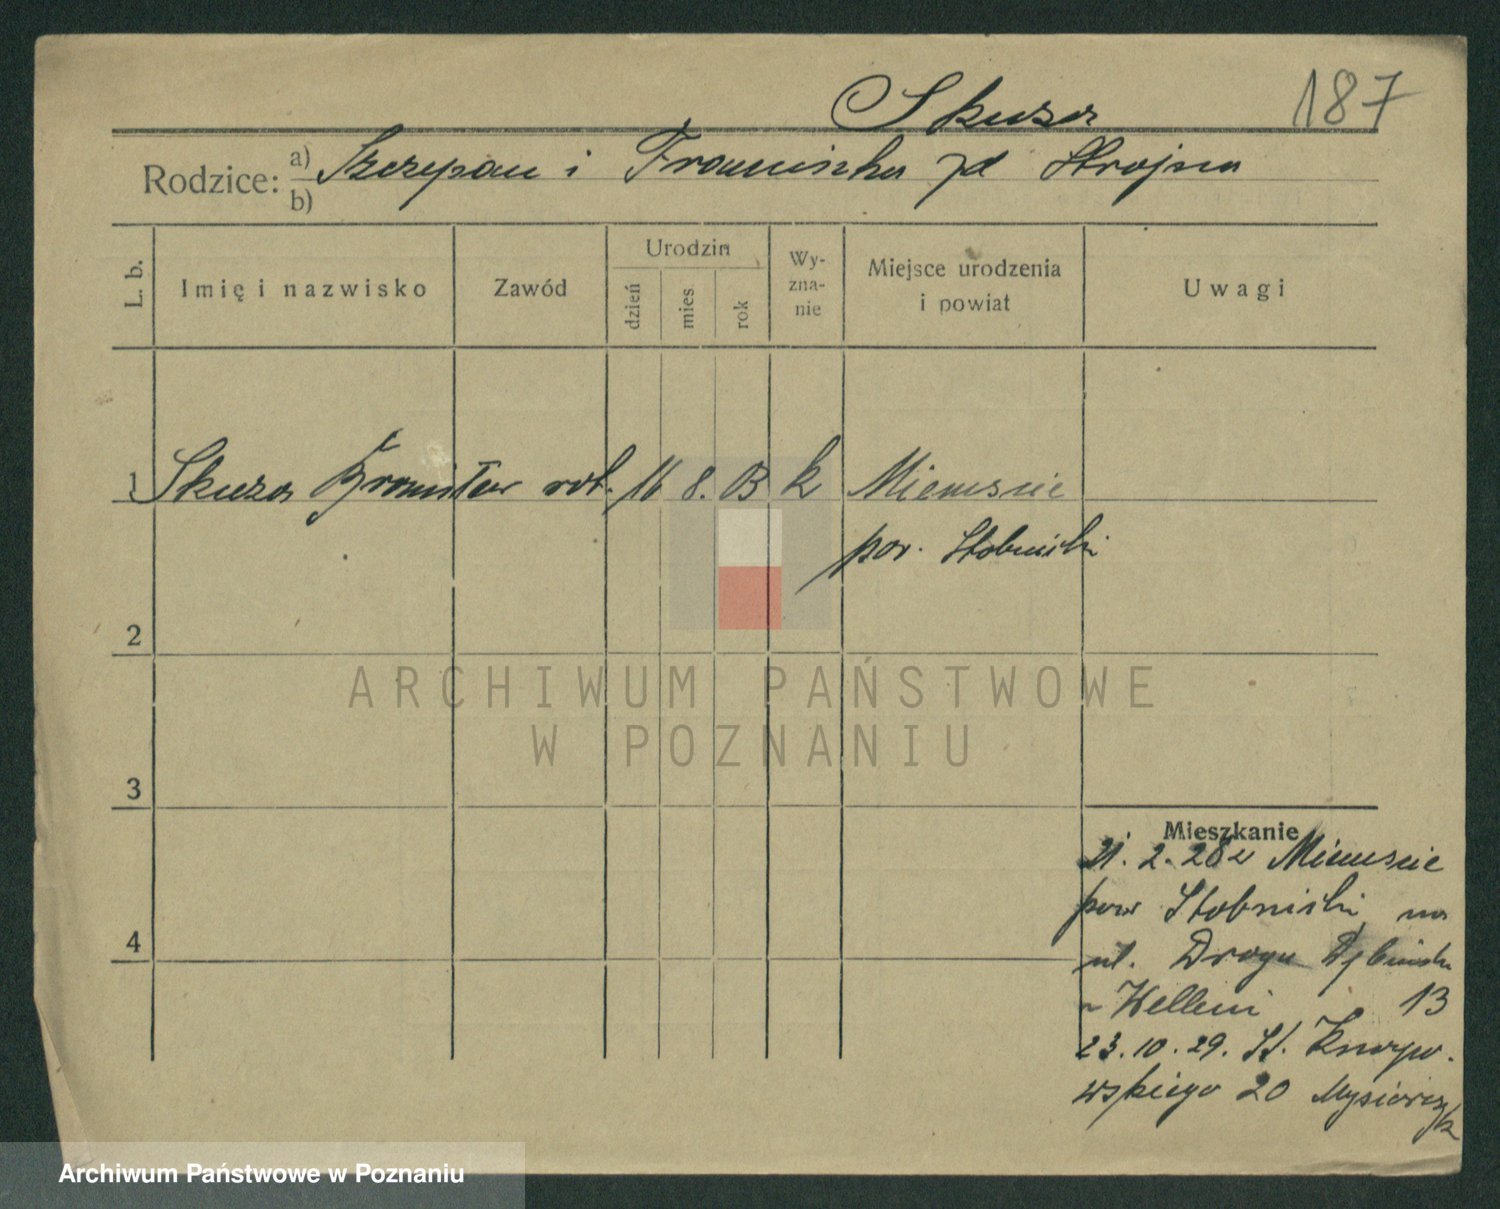 Skuza
187
Rodzice: a) Szczepan i Franciszka zd Strojna
b)
L. b.
Imię i nazwisko
Zawód
Urodzin
dzień
mies
rok
Wy-
zna-
nie
Miejsce urodzenia
i powiat
Uwagi
1 Skuza Bronisław rob. 16 8. 03 k
pow. Stobnicki
2
3
4
ARCHIWUM PAŃSTWOWE
W POZNANIU
Mieszkanie
21. 2. 28 z
pow Stobnicki na
ul. Droga Dębińska
13
23.10.29. St. Knapo.
wskiego 20
Archiwum Państwowe w Poznaniu